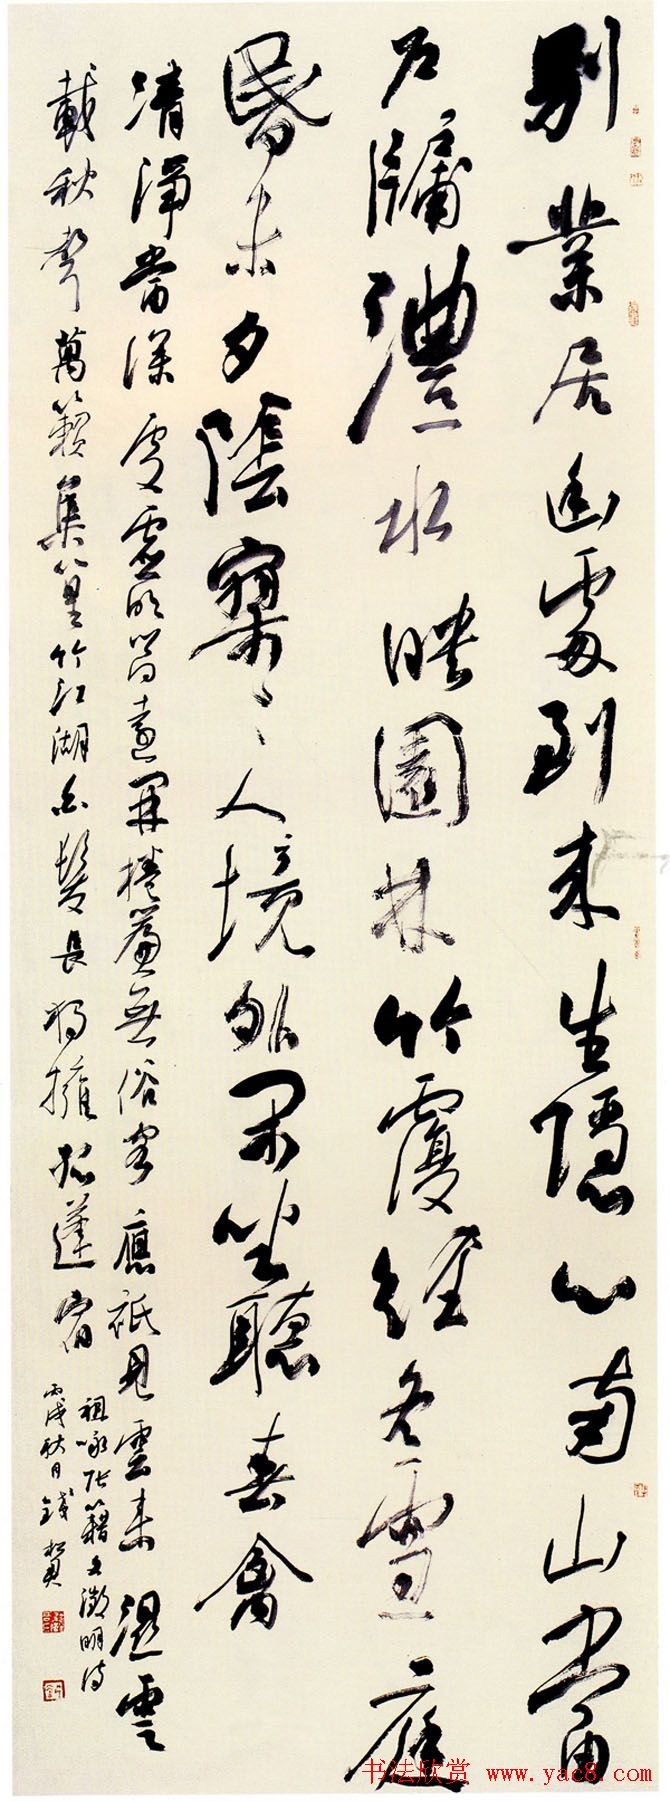 別業居幽處到來生隱心南山當
戶牖灃水映園林竹覆經冬雪庭
昏未夕陰寥々人境外閑坐聽春禽
清淨當深處虛明向遠開捲簾無俗客應祇見雲來濕雲
載秋聲萬籟集篁竹江湖白髮長獨擁孤蓬宿
祖詠張籍文徵明詩
丙戌秋日錢
书法欣赏 www.yac8.com